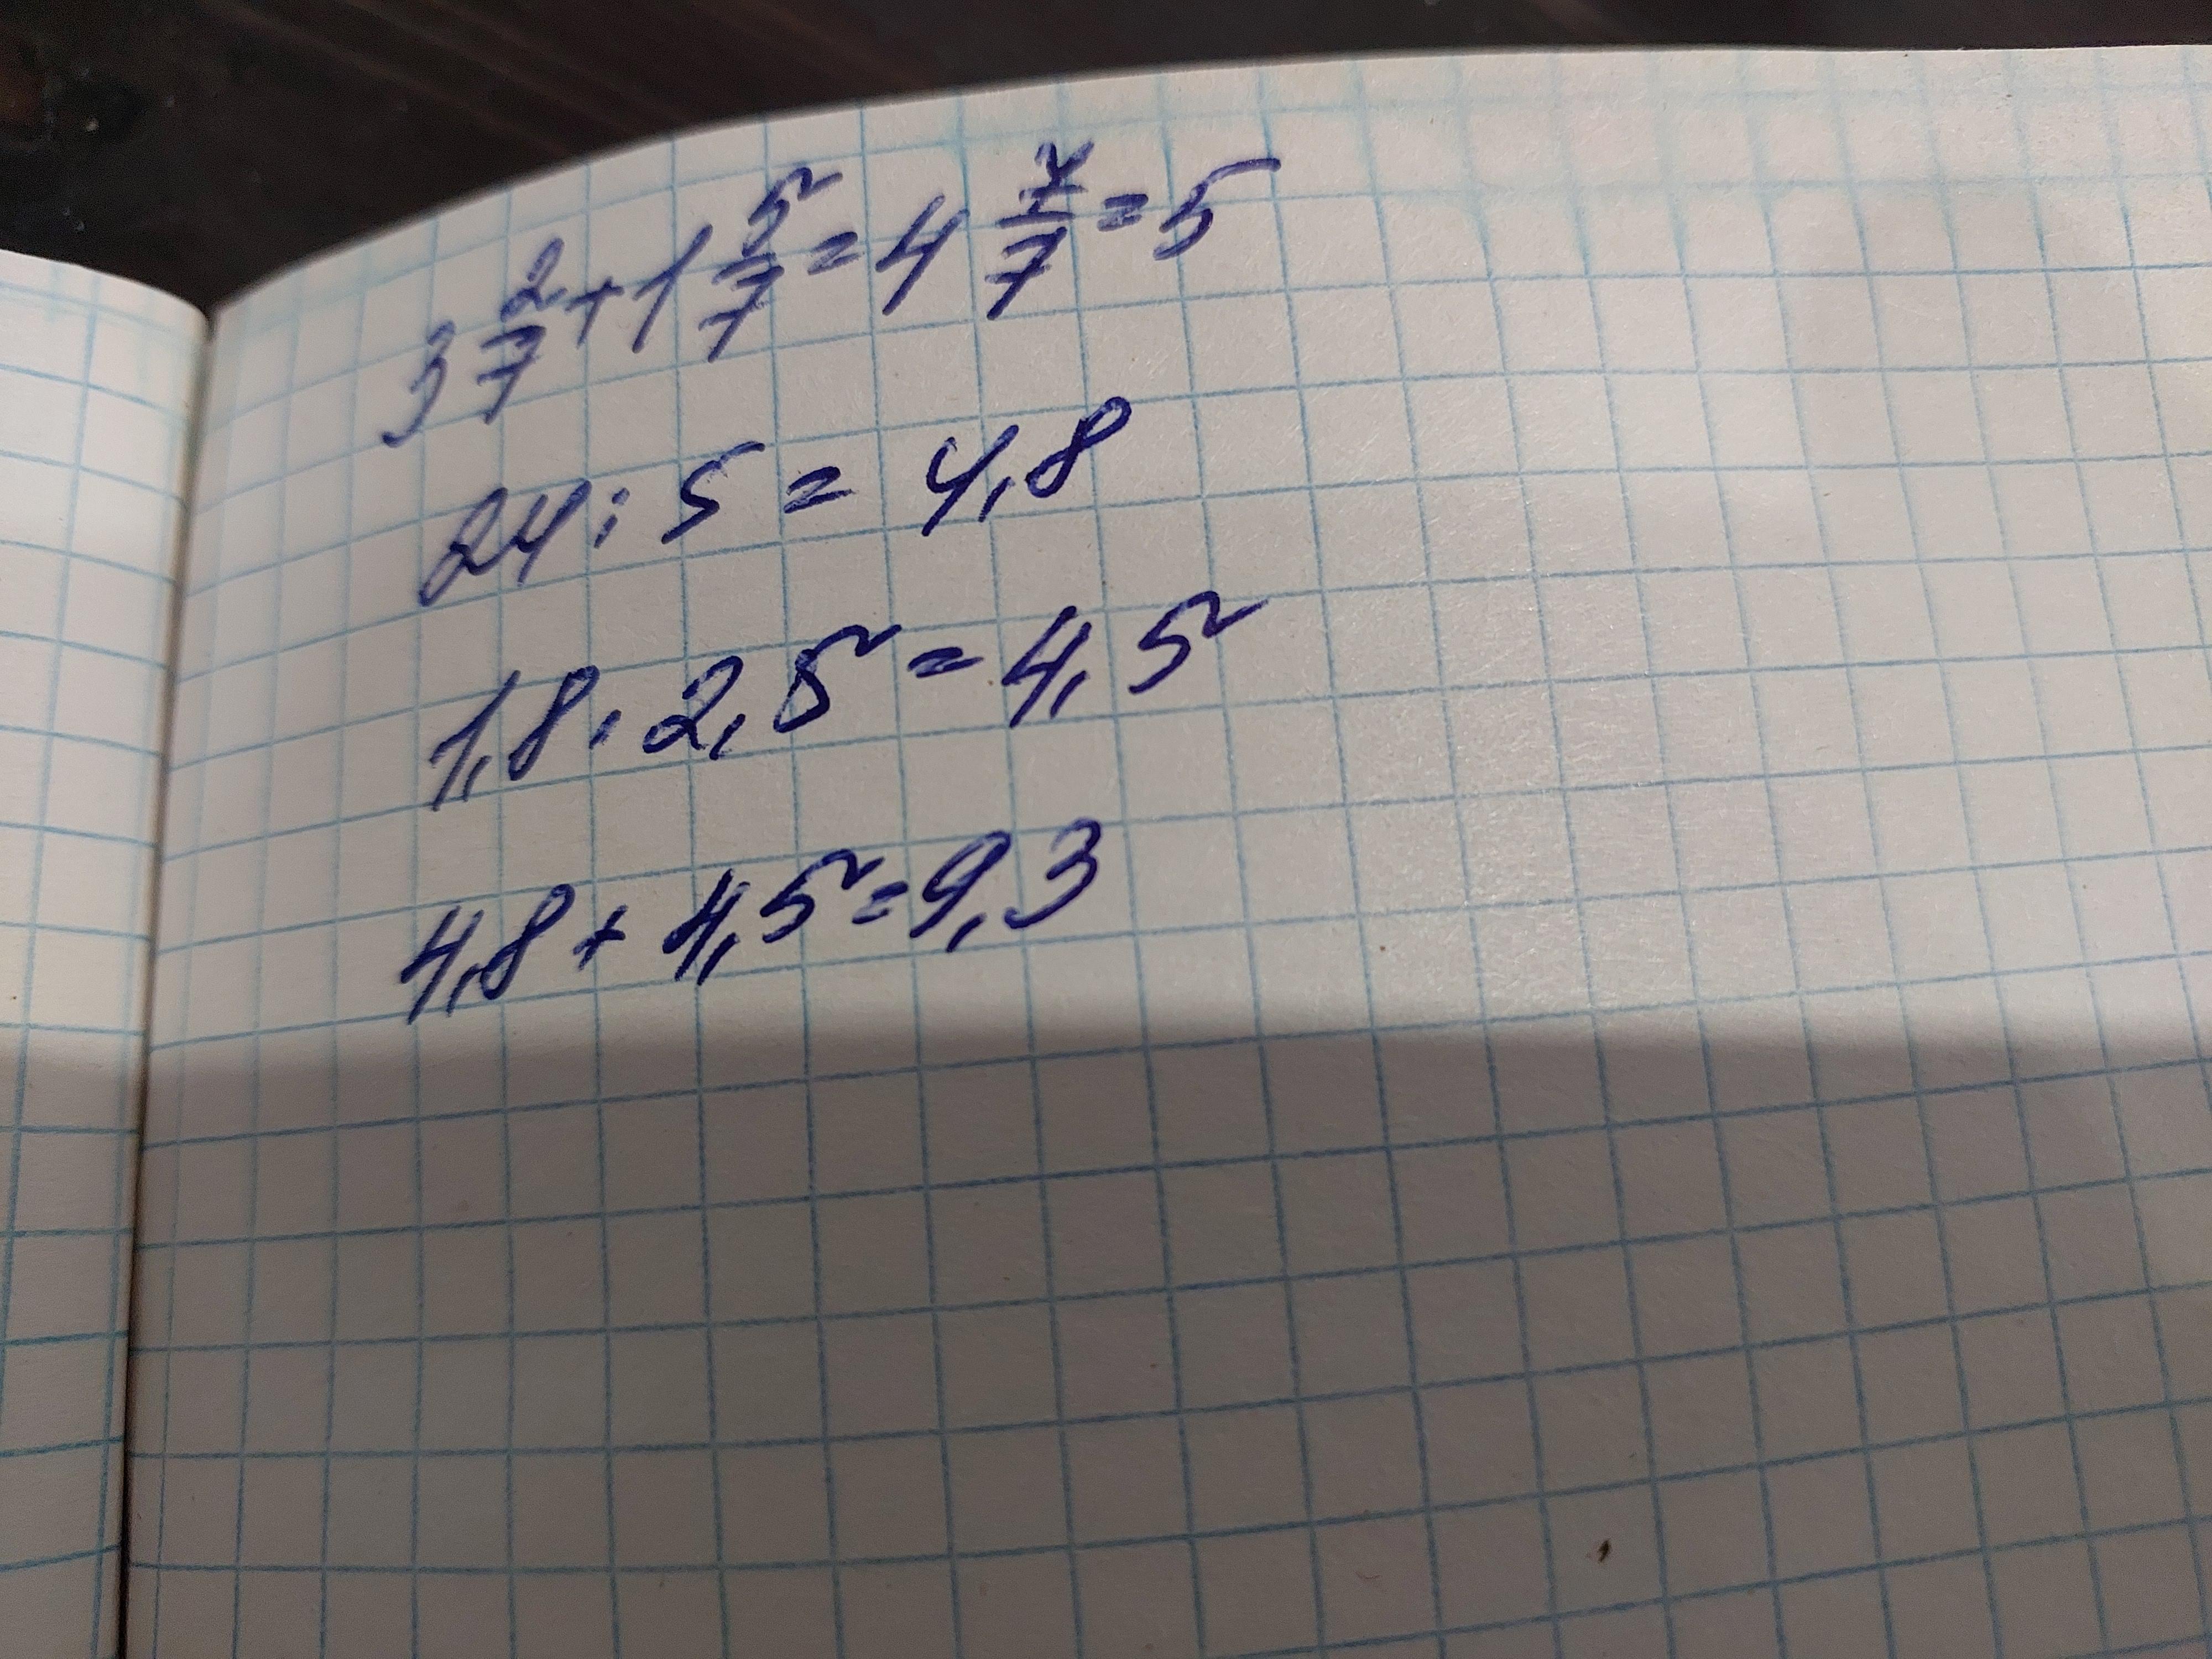 3 2/7 + 1 5/7 = 4 7/7 = 5
24 : 5 = 4,8
1,8 · 2,5 = 4,5
4,8 + 4,5 = 9,3